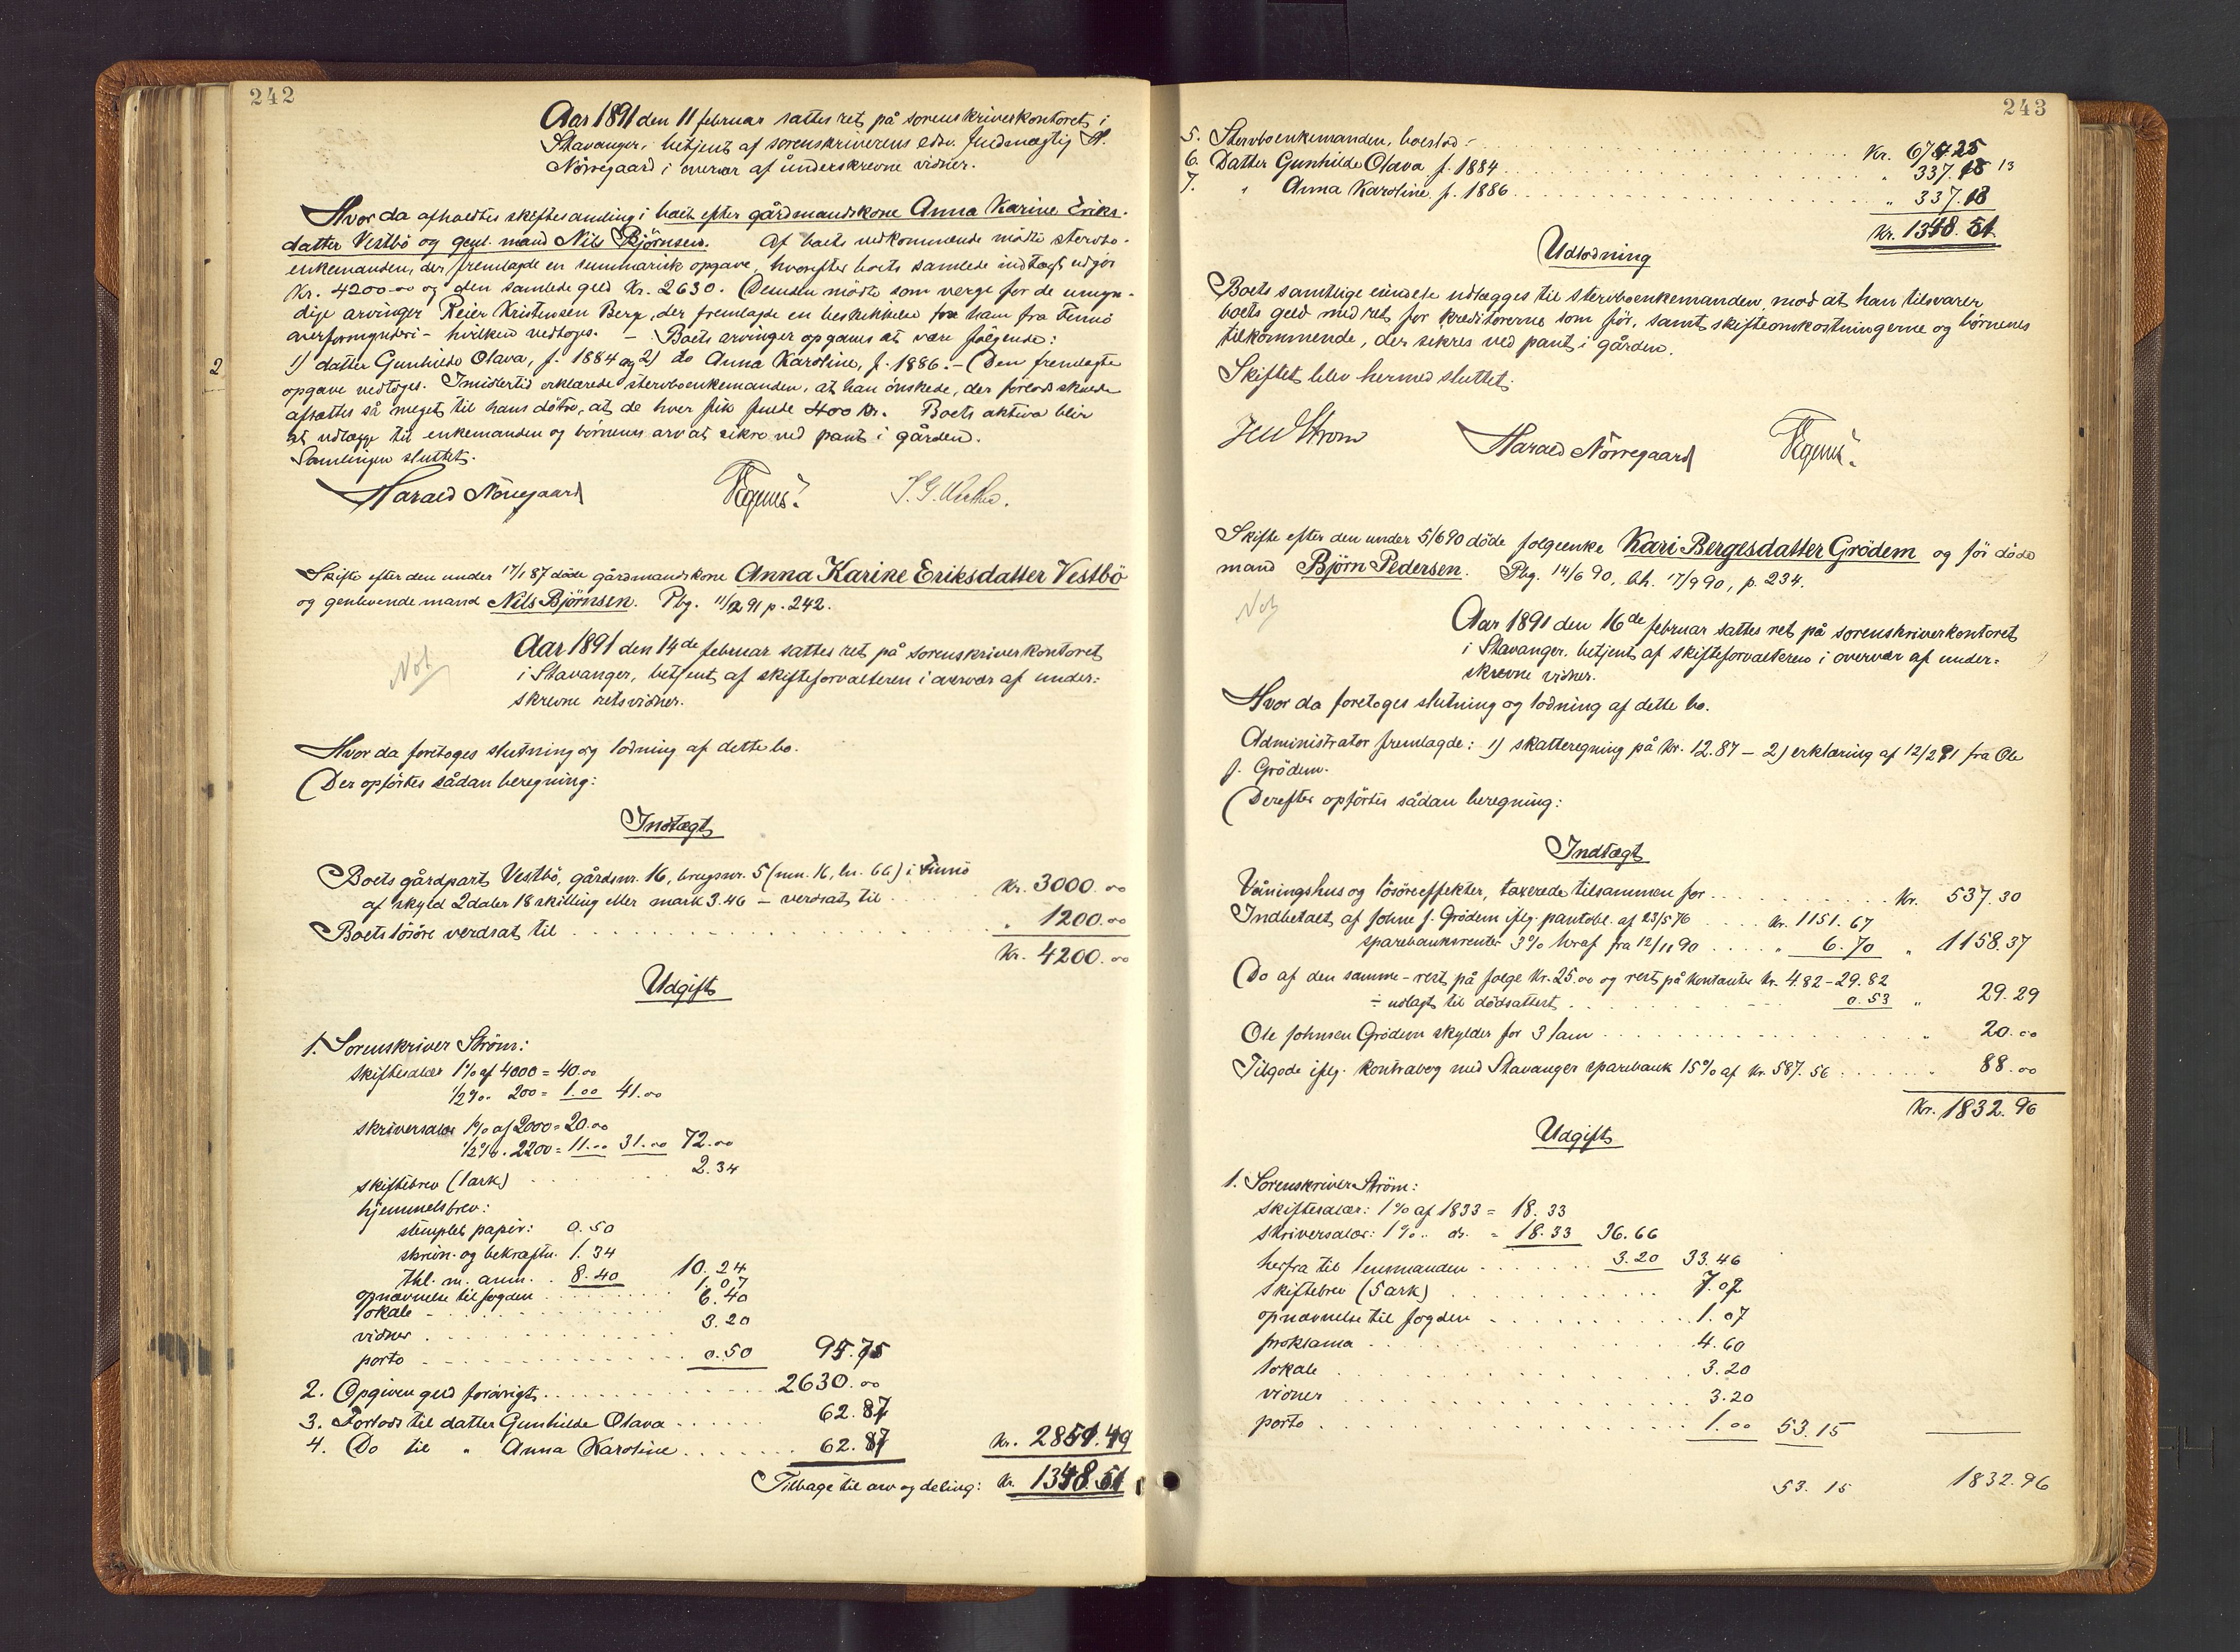 242
Aar 1891 den 11 februar sattes ret på sorenskriverkontoret i
Stavanger, betjent af sorenskriverens edsv. fuldmægtig H.
Nörregaard i overvær af underskrevne vidner.
Hvor da afholdtes skiftesamling i boet efter gårdmandskone Anna Karine Eriks-
datter Vestbö og genl. mand Nils Björnsen. Af boets vedkommende mödte stervbo-
enkemanden, der fremlagde en summarisk opgave, hvorefter boets samlede indtægt udgör
Kr. 4200.00 og den samlede gæld Kr. 2630. Desuden mödte som verge for de umyn-
dige arvinger Reier Kristensen Berg, der fremlagde en beskikkelse for ham fra Finnö
overformynderi - hvilken vedtoges. - Boets arvinger opgaves at være fölgende:
1) datter Gunhilde Olava, f. 1884 og 2) do Anna Karoline, f. 1886. - Den fremlagte
2
opgave vedtoges. Imidlertid erklærede stervboenkemanden, at han önskede, der forlods skulde
afsættes så meget til hans dötre, at de hver fik fulde 400 Kr. Boets aktiva blir
at udlægge til enkemanden og börnenes arv at sikre ved pant i gården.
Samlingen sluttet.
Harald Nörregaard
Skifte efter den under 17/1 87 döde gårdmandskone Anna Karine Eriksdatter Vestbö
og genlevende mand Nils Björnsen. Pbg. 11/2 91 p. 242.
Not
Aar 1891 den 14de februar sattes ret på sorenskriverkontoret
i Stavanger, betjent af skifteforvalteren i overvær af under-
skrevne retsvidner.
Hvor da foretoges slutning og lodning af dette bo.
Der opförtes sådan beregning:
Indtægt
Boets gårdpart Vestbö, gårdsnr. 16, brugsnr. 5 (mn. 16, ln. 66) i Finnö
af skyld 2 daler 18 skilling eller mark 3.46 - verdsat til . . . Kr. 3000.00
Boets lösöre verdsat til . . . " 1200.00
Kr. 4200.00
Udgift
1. Sorenskriver Ström:
skiftesalær 1% af 4000 = 40.00
1/2% " 200 = 1.00 41.00
skriversalær 1% af 2000 = 20.00
1/2% " 2200 = 11.00 31.00 72.00
skiftebrev (1 ark) . . . 2.34
hjemmelsbrev:
stemplet papir: 0.50
skriv. og bekræftn. 1.34
thl. m. anm. . 8.40 10.24
opnævnelse til fogden . . . 1.07
lokale . . . 6.40
vidner . . . 3.20
porto . . . 0.50 95.75
2. Opgiven gæld forövrigt . . . 2630.00
3. Forlods til datter Gunhilde Olava . . . 62.87
4. Do til " Anna Karoline . . . 62.87 Kr. 2851.49
Tilbage til arv og deling: Kr. 1348.51
243
5. Stervboenkemanden, boeslod . . . Kr. 674.25
6. Datter Gunhilde Olava f. 1884 . . . " 337.13 13
7. " Anna Karoline f. 1886 . . . " 337.13
Kr. 1348.51
Udlodning
Boets samtlige eiendele udlægges til stervboenkemanden mod at han tilsvarer
boets gæld med ret for kreditorerne som för, samt skifteomkostningerne og börnenes
tilkommende, der sikres ved pant i gården.
Skiftet blev hermed sluttet.
Ström Harald Nörregaard
Skifte efter den under 5/6 90 döde folgeenke Kari Bergesdatter Grödem og för döde
mand Björn Pedersen. Pbg. 14/6 90, bh. 17/9 90, p. 234.
Not
Aar 1891 den 16de februar sattes ret på sorenskriverkontoret
i Stavanger, betjent af skifteforvalteren i overvær af under-
skrevne vidner.
Hvor da foretoges slutning og lodning af dette bo.
Administrator fremlagde: 1) skatteregning på Kr. 12.87 - 2) erklæring af 12/2 91 fra Ole
J. Grödem.
Derefter opförtes sådan beregning:
Indtægt
Våningshus og lösöreeffekter, taxerede tilsammen for . . . Kr. 537.30
Indbetalt af Johne J. Grödem iflg. pantobl. af 23/5 76 . . . Kr. 1151.67
sparebankrenter 3% heraf fra 12/11 90 . . . " 6.70 " 1158.37
Do af den samme - rest på folge Kr. 25.00 og rest på kontanter Kr. 4.82 - 29.82
÷ udlagt til dödsattest . . . 0.53 " 29.29
Ole Johnsen Grödem skylder for 3 lam . . . " 20.00
Tilgode iflg. kontrabog med Stavanger sparebank 15% af Kr. 587.56 . . . " 88.00
Kr. 1832.96
Udgift
1. Sorenskriver Ström:
skiftesalær: 1% af 1833 = 18.33
skriversalær: 1% " do. = 18.33 36.66
herfra til lensmanden . . . 3.20 33.46
skiftebrev (5 ark) . . . 7.02
opnævnelse til fogden . . . 1.07
proklama . . . 4.60
lokale . . . 3.20
vidner . . . 3.20
porto . . . 1.00 53.15
53.15 1832.96